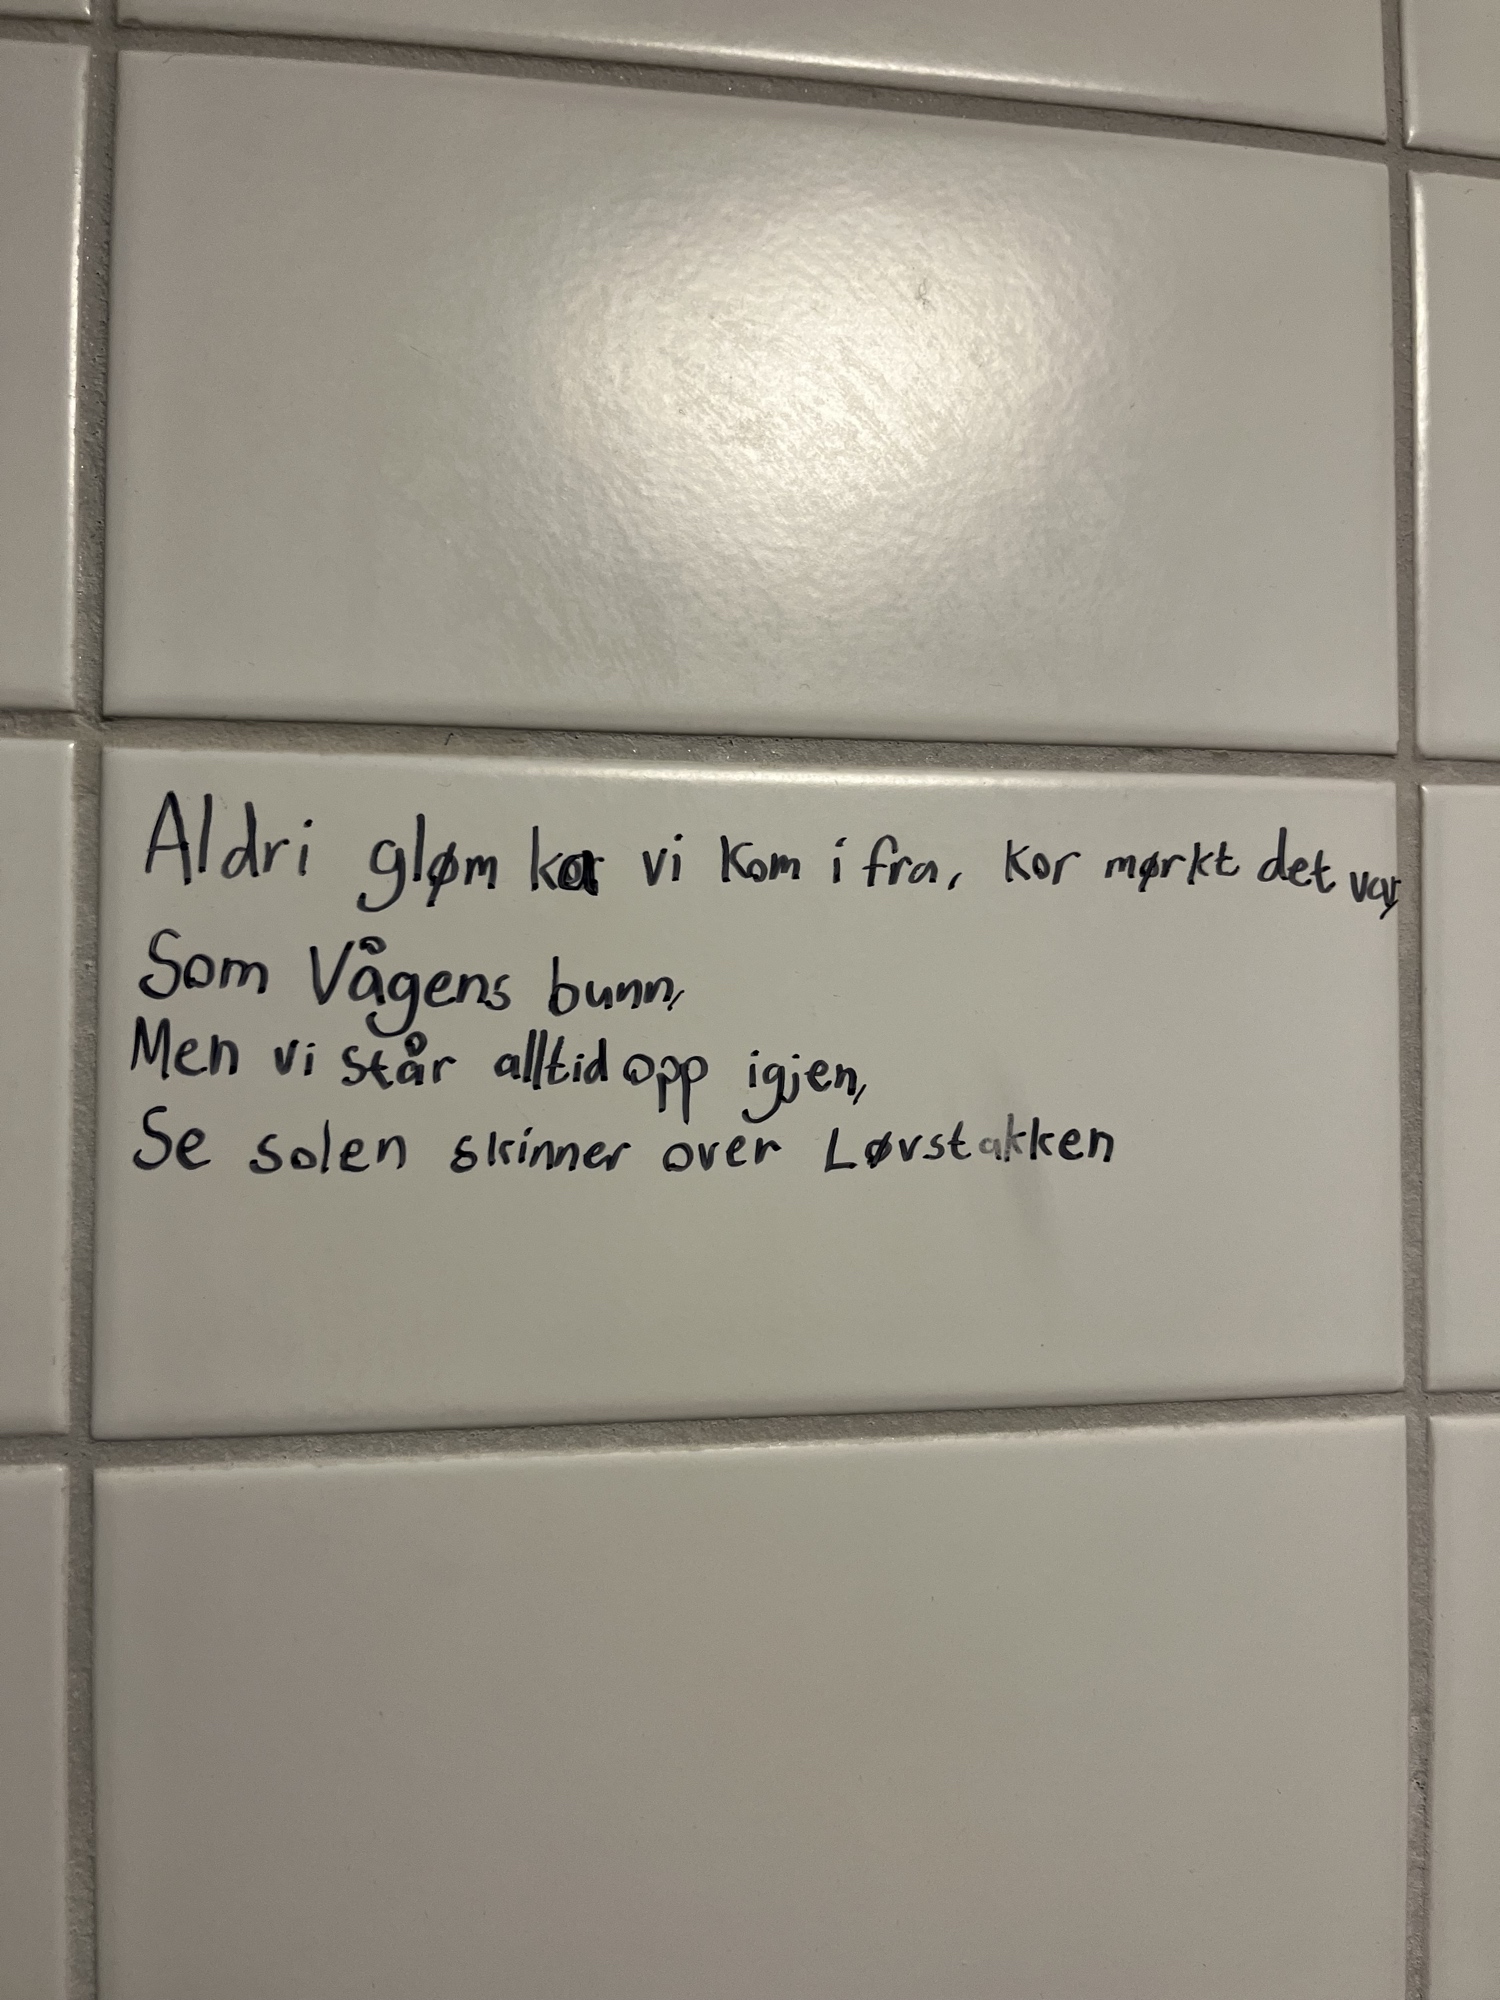 Aldri gløm kor vi kom ifra, kor mørkt det var,
Som Vågens bunn,
Men vi står alltid opp igjen,
Se solen skinner over Løvstakken